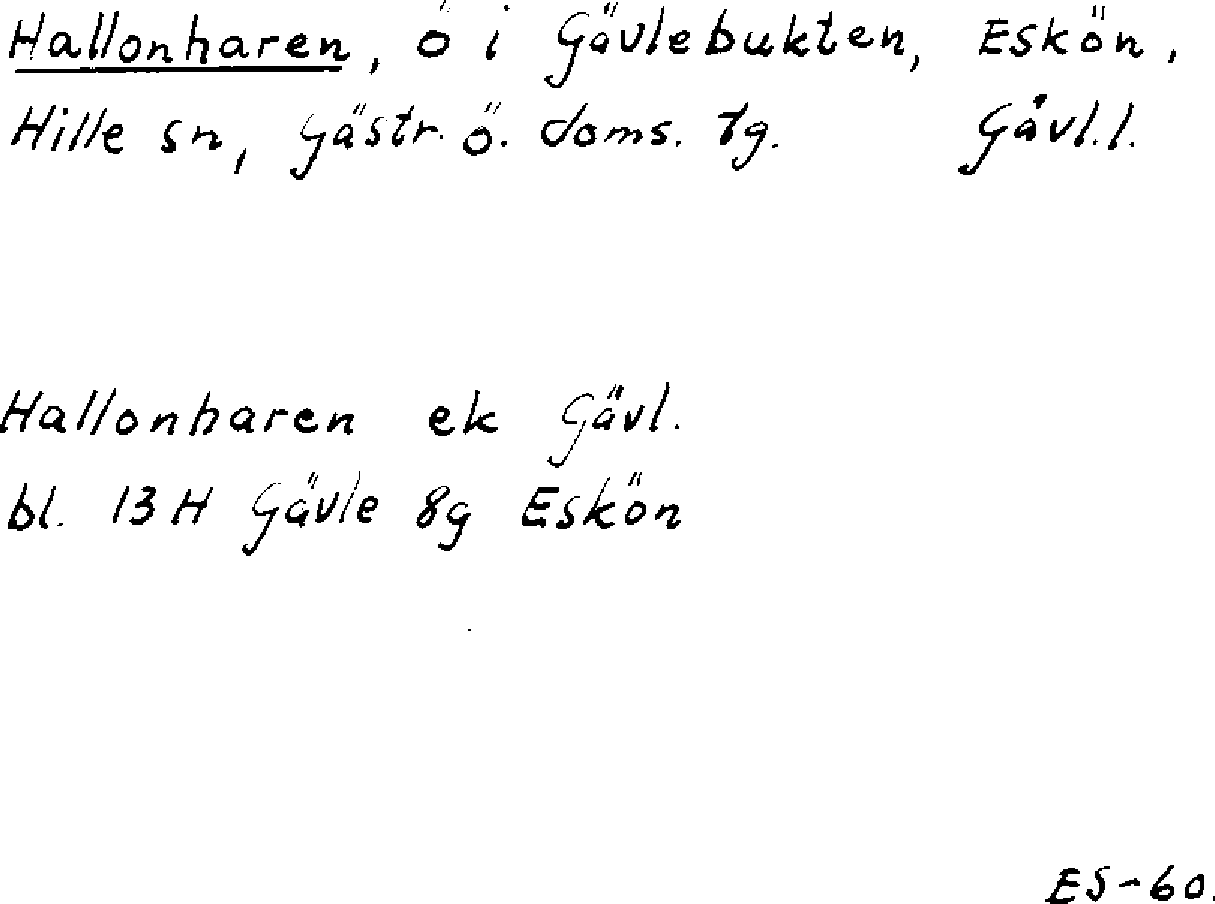 Hallonharen, ö i Gävlebukten, Eskön,
Hille sn, Gästr. ö. doms. tg. Gävl.l.
Hallonharen ek Gävl.
bl. 13H Gävle 8g Eskön
ES-60.